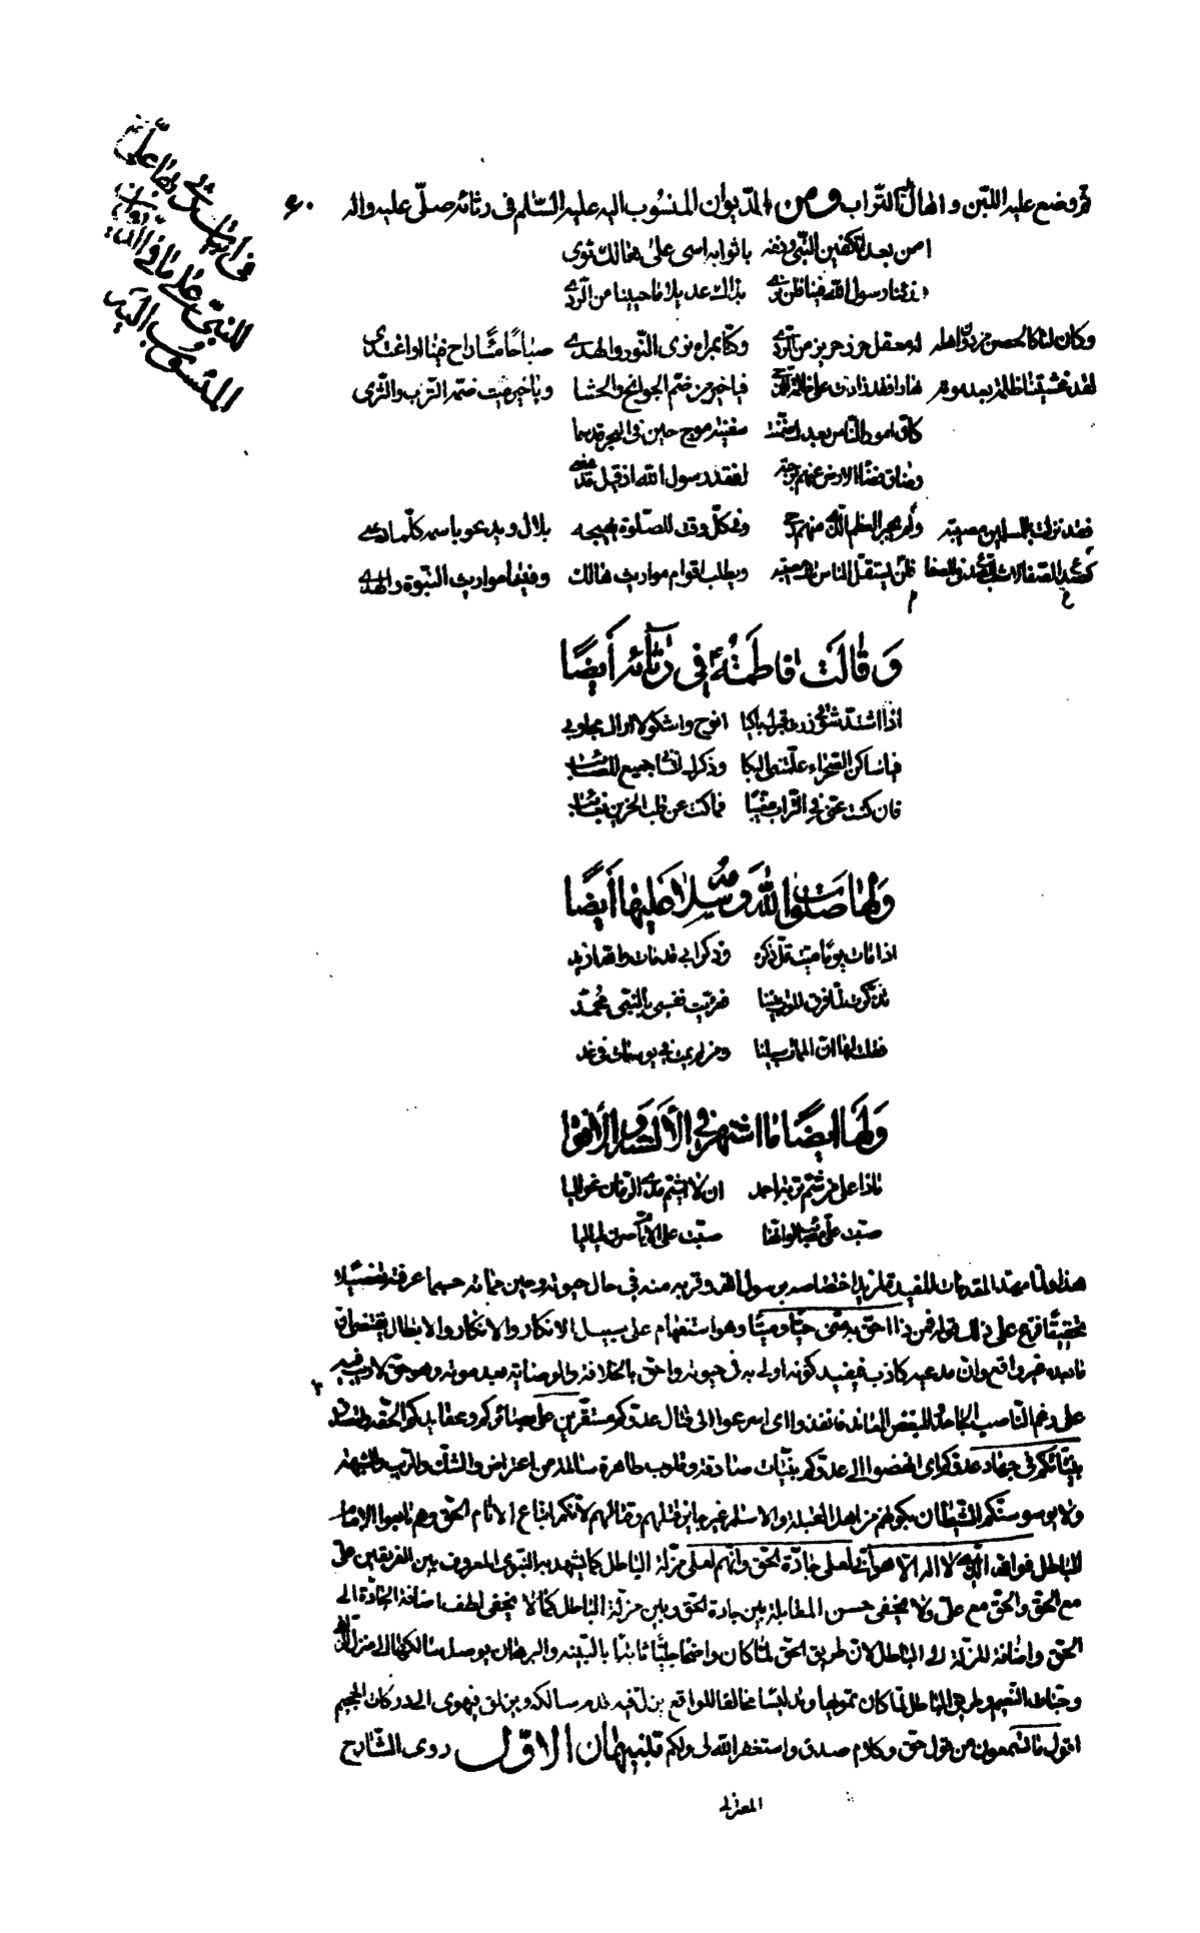 ثم وضع عليه اللبن واهال التراب ومن الديوان المنسوب اليه عليه السّلم فى رثائه صلّى عليه واله ٦٠
فى ابيات رثى بها علىّ
للنبىّ على ما فى الديوان
المنسوب اليه
امن بعد تكفين النبى ودفنه باثوابه اسى على هالك ثوى
رزئنا رسول الله فينا فلن نرى بذاك عديلا ما حيينا من الردى
وكان لنا كالحصن من دون اهله له معقل حرز حريز من الردى وكنا بمراه نرى النّور والهدى صباحا مسا راح فينا او اغتدى
لقد غشيتنا ظلمة بعد موته نهارا فقد زادت على ظلمة الدجى فيا خير من ضمّ الجوانح والحشا ويا خير ميت ضمّه الترب والثرى
كانّ امور النّاس بعدك ضمّنت سفينة موج حين فى البحر قد سما
وضاق فضاء الارض عنهم برحبه لفقد رسول الله اذ قيل قد مضى
فقد نزلت بالمسلمين مصيبة ولن يجبر العظم الّذى منهم وهى وفى كلّ وقت للصّلوة يهيجه بلال ويدعو باسمه كلّما دعى
كصدع الصفا لا شعب للصدع فى الصفا فلن يستقلّ الناس تلك مصيبة ويطلب اقوام مواريث هالك وفينا مواريث النّبوة والهدى
وَقٰالَت فٰاطمَةُ فِى رِثٰآئه أيضًا
اذا اشتدّ شوقى زرت قبرك باكيا انوح واشكو لا اراك مجاوبى
فيا ساكن الصّحراء علّمتنى البكا وذكرك انسا جميع المصائب
فان كنت عنّى فى التّراب مغيّبا فما كنت عن قلب الحزين بغائب
وَلَها صَلَواتُ اللهِ وَسَلامُهُ عَلَيها أيضًا
اذا مات يوما ميت قلّ ذكره وذكر ابى قد مات والله ازيد
تذكّرت لمّا فرق الموت بيننا فعزّيت نفسى بالنّبى محُمّد
فقلت لها انّ الممات سبيلنا ومن لم يمت فى يومه مات فى غد
وَلَهَا ايضًا مٰا اشتهر فِى الألسُن وَالأفواه
ماذا على من شمّ تربة احمد ان لا يشمّ مدى الزّمان غواليا
صبّت علىّ مصائب لو انّها صبّت على الايّام صرن لياليا
هذا ولمّا مهّد المقدمات المفيدة لمزيد اختصاصه برسول الله وقربه منه فى حال حيوته وحين مماته حسبما عرفته تفصيلا
تحقيقا فرّع على ذلك قوله فمن ذا احق به منّى حيّا وميّتا وهو استفهام على سبيل الانكار والانكار والابطال يقتضى انّ
ما بعده غير واقع وانّ مدعيه كاذب فيفيد كونه اولى به فى حيوته واحق بالخلافة والوصاية بعد موته وهو حق لا ريب فيه
على رغم النّاصب الجاحد المبغض المعاند فانفذوا اى اسرعوا الى قتال عدوّكم مستقرّين على بصائركم وعقايدكم الحقّه ولتصدق
نيّاتكم فى جهاد عدوّكم اى انهضوا الى عدوّكم بنيّات صادقة وقلوب طاهرة سالمة من اعتراض والشكّ والريب والشّبهة
ولا يوسوسنّكم الشّيطان بكونهم من اهل القبلة والاسلام غير جايز قتلهم وقتالهم لانّكم اتباع الامام الحقّ وهم تابعوا الامام
الباطل فوالله الّذى لا اله الاّ هو انّى لعلى جادّة الحقّ وانّهم لعلى مزلّة الباطل كما يشهد به النّبوى المعروف بين الفريقين علىّ
مع الحقّ والحقّ مع علىّ ولا يخفى حسن المقابلة بين جادة الحقّ وبين مزلّة الباطل كما لا يخفى لطف اضافة الجادّة الى
الحقّ واضافة المزلّة الى الباطل لانّ طريق الحقّ لمّا كان واضحا جليّا ثابتا بالبيّنة والبرهان يوصل سالكه الى منزل الزلفى
وجنات النّعيم وطريق الباطل لمّا كان تمويها وتدليسا مخالفا للواقع يزلّ فيه قدم سالكه ويزلق فيهوى الى دركات الجحيم
اقول ما تسمعون من قول حق وكلام صدق واستغفر الله لى ولكم تنبيهان الاوّل روى الشّارح
المعتزلى